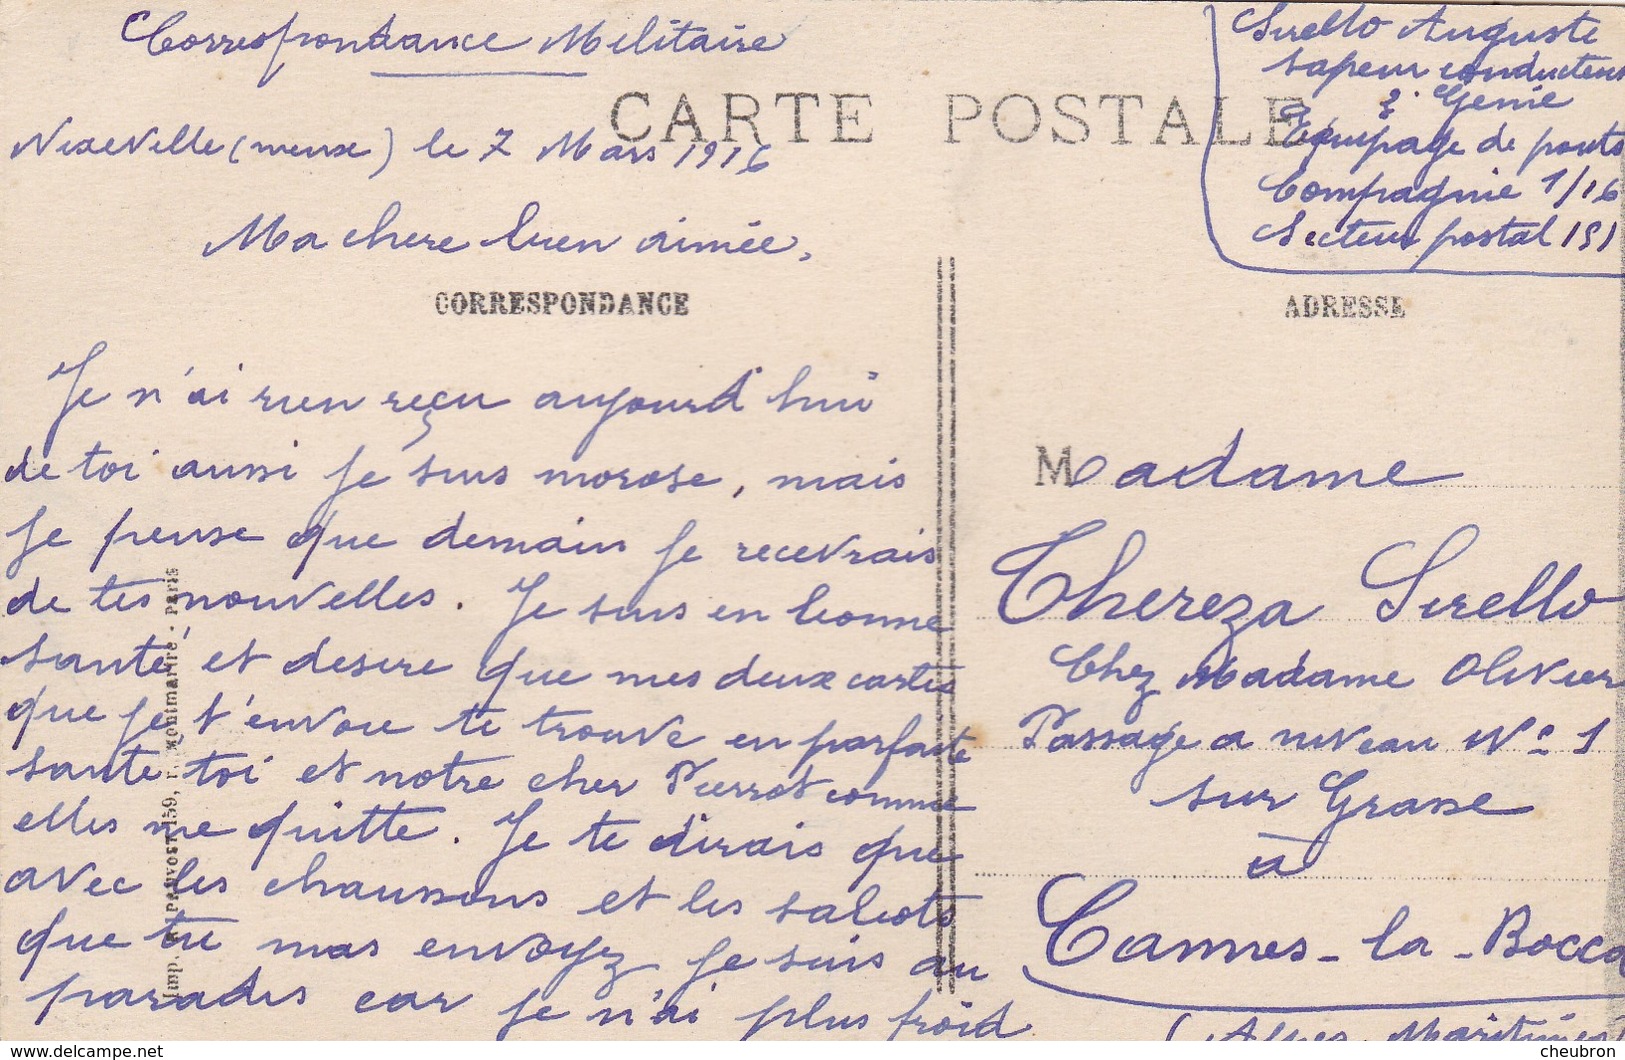 Correspondance Militaire
CARTE POSTALE
Nixeville (meuse) le 7 Mars 1916
Ma chere bien aimée,
CORRESPONDANCE
Je n'ai rien reçu aujourd'hui
de toi aussi je suis morose, mais
je pense que demain je recevrais
de tes nouvelles. Je suis en bonne
santé et desire que mes deux cartes
que je t'envoie te trouve en parfaite
sante toi et notre cher Pierrot comme
elles me quitte. Je te dirais que
avec les chaussons et les sabots
que tu mas envoyez je suis au
paradis car je n'ai plus froid
Imp. PRUVOST, 159, r. Montmartre - Paris
Sirello Auguste
sapeur conducteur
2° Genie
Equipage de ponts
Compagnie 1/16
Secteur postal 151
ADRESSE
Madame
Thereza Sirello
Chez Madame Olivier
Passage a niveau N° 1
sur Grasse
à
Cannes-la-Bocca
(Alpes Maritimes)
© cheubron
www.delcampe.net